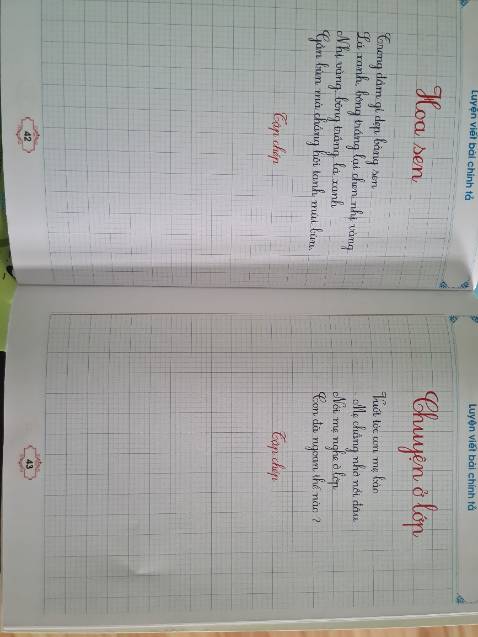 Luyện viết bài chính tả
Hoa sen
Trong đầm gì đẹp bằng sen
Lá xanh bông trắng lại chen nhị vàng
Nhị vàng bông trắng lá xanh
Gần bùn mà chẳng hôi tanh mùi bùn.
Tập chép
42
Luyện viết bài chính tả
Chuyện ở lớp
Vuốt tóc con mẹ bảo
Mẹ chẳng nhớ nổi đâu
Nói mẹ nghe ở lớp
Con đã ngoan thế nào ?
Tập chép
43